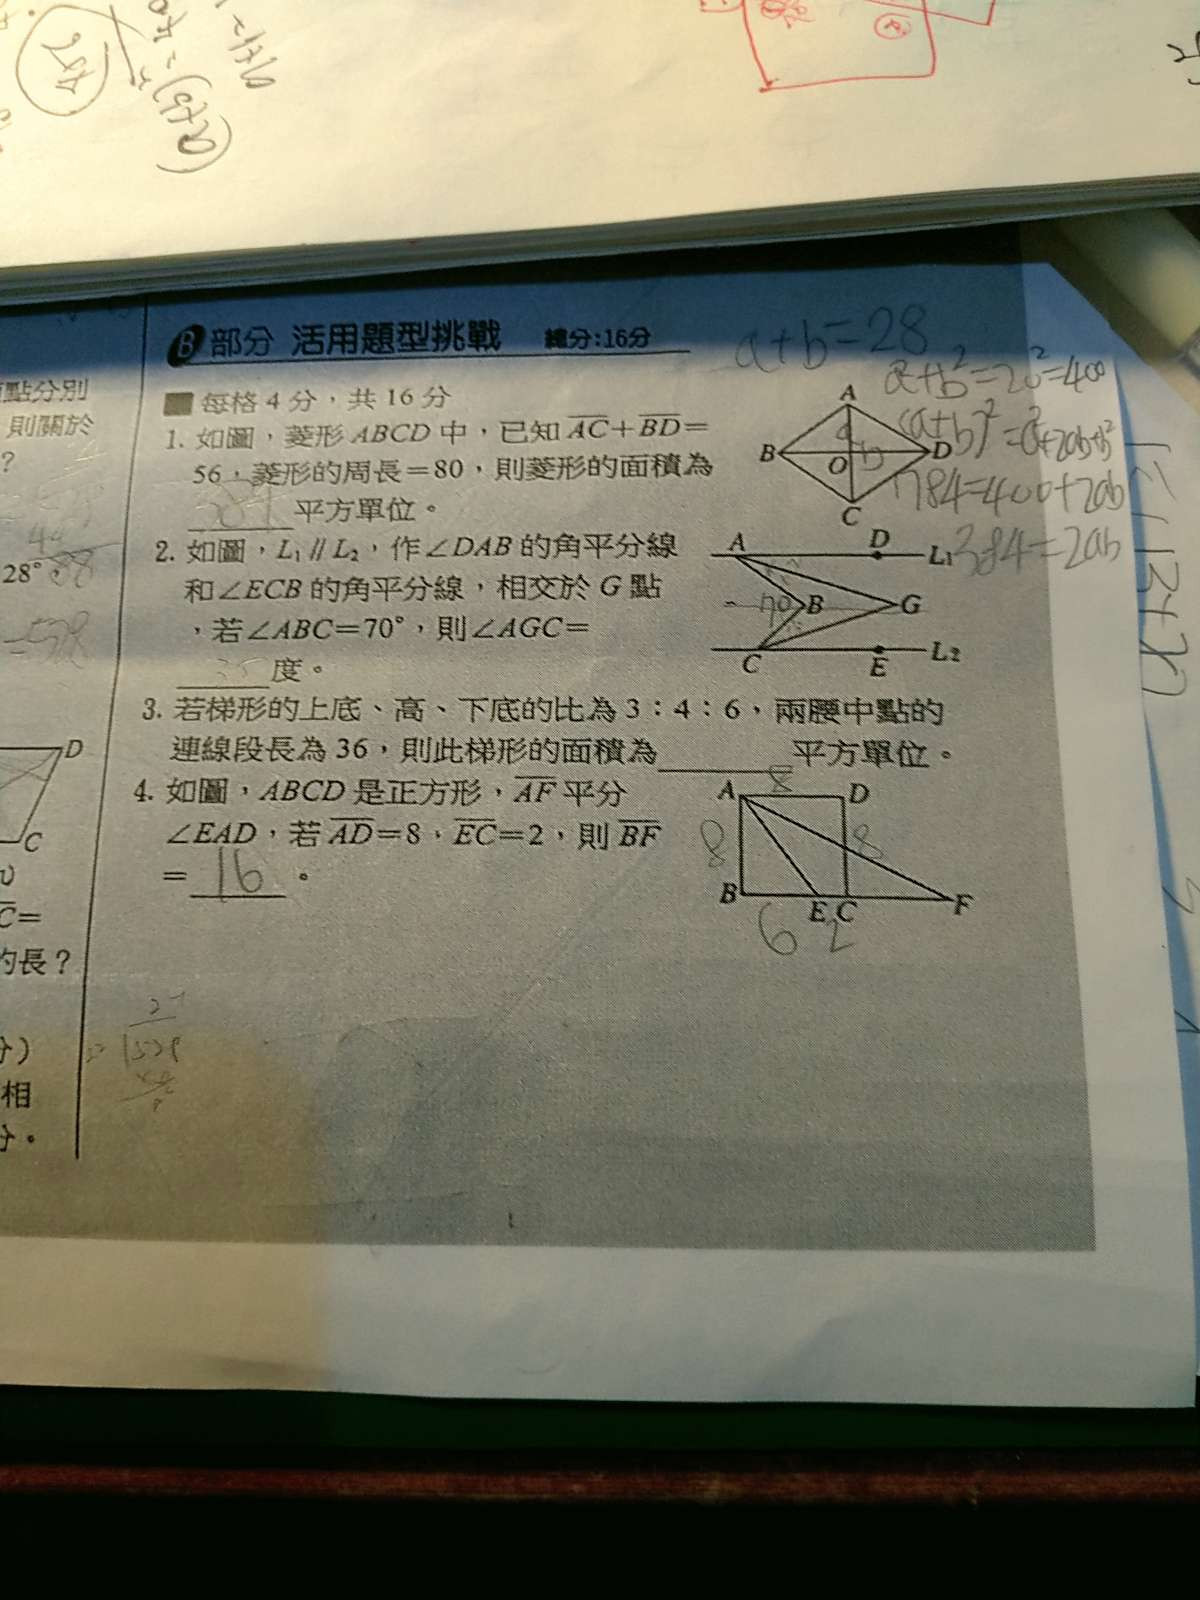 752
(a+b)²=
B 部分 活用題型挑戰 總分:16分
a+b=28
■ 每格 4 分，共 16 分
a²+b²=20²=400
1. 如圖，菱形 ABCD 中，已知 AC+BD=
56，菱形的周長=80，則菱形的面積為
384 平方單位。
A
B
O
D
C
a
b
(a+b)²=a²+2ab+b²
784=400+2ab
384=2ab
2. 如圖，L₁∥L₂，作∠DAB 的角平分線
和∠ECB 的角平分線，相交於 G 點
，若∠ABC=70°，則∠AGC=
35 度。
A
D
L₁
70
B
G
C
E
L₂
3. 若梯形的上底、高、下底的比為 3：4：6，兩腰中點的
連線段長為 36，則此梯形的面積為 平方單位。
4. 如圖，ABCD 是正方形，AF 平分
∠EAD，若 AD=8，EC=2，則 BF
= 16 。
A
8
D
8
8
B
E
C
F
6
2
點分別
則關於
？
28°
D
C
C=
的長？
分）
相
分。